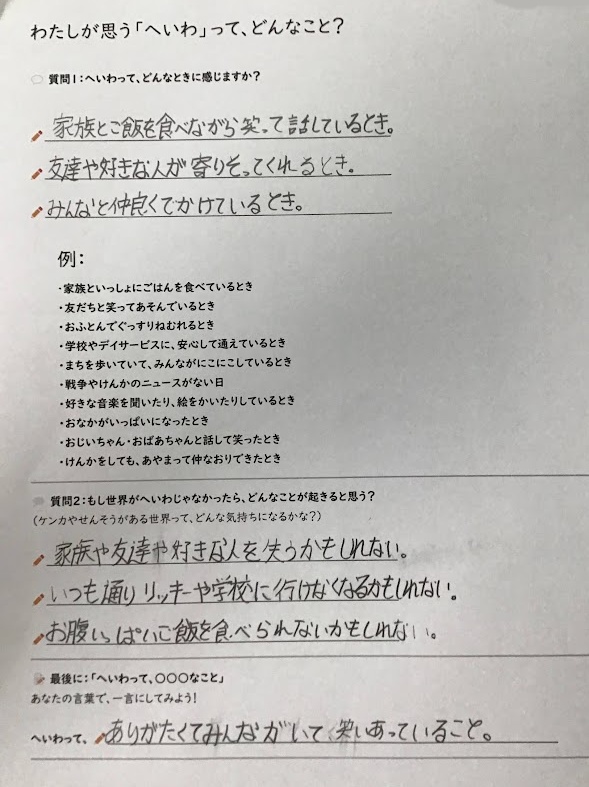 わたしが思う「へいわ」って、どんなこと?
質問1:へいわって、どんなときに感じますか?
家族とご飯を食べながら笑って話しているとき。
友達や好きな人が寄りそってくれるとき。
みんなと仲良くでかけているとき。
例:
・家族といっしょにごはんを食べているとき
・友だちと笑ってあそんでいるとき
・おふとんでぐっすりねむれるとき
・学校やデイサービスに、安心して通えているとき
・まちを歩いていて、みんながにこにこしているとき
・戦争やけんかのニュースがない日
・好きな音楽を聞いたり、絵をかいたりしているとき
・おなかがいっぱいになったとき
・おじいちゃん・おばあちゃんと話して笑ったとき
・けんかをしても、あやまって仲なおりできたとき
質問2:もし世界がへいわじゃなかったら、どんなことが起きると思う?
(ケンカやせんそうがある世界って、どんな気持ちになるかな?)
家族や友達や好きな人を失うかもしれない。
いつも通りリッキーや学校に行けなくなるかもしれない。
お腹いっぱいご飯を食べられないかもしれない。
最後に:「へいわって、〇〇〇なこと」
あなたの言葉で、一言にしてみよう!
へいわって、ありがたくてみんながいて笑いあっていること。